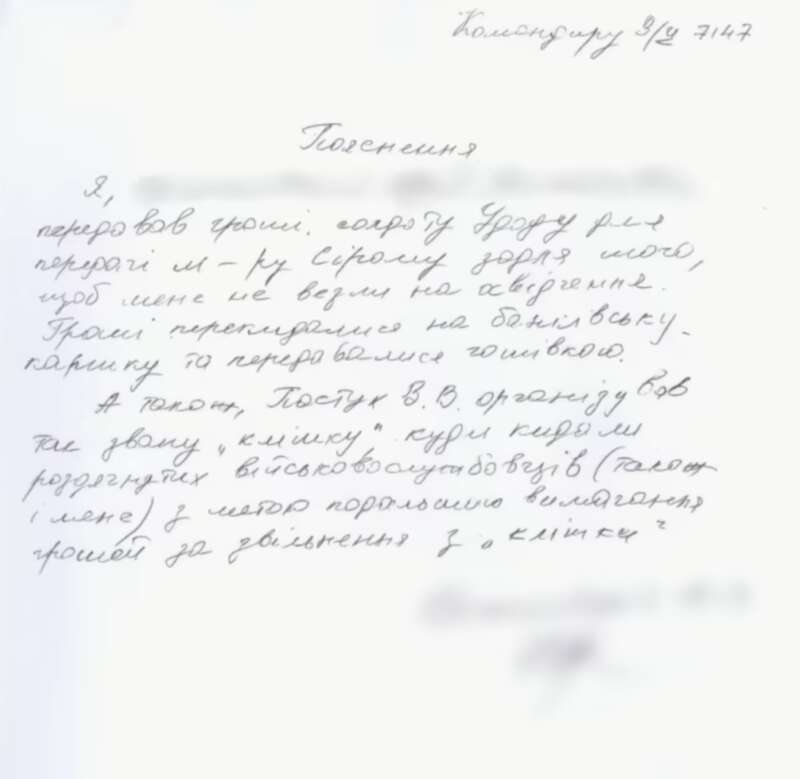 Командиру В/Ч 7147
Пояснення
Я,
передавав гроші солдату Уроду для
передачі м-ру Сірому задля того,
щоб мене не везли на освідчення.
Гроші перекидалися на банківську
картку та передавалися готівкою.
А також, Пастух В.В. організував
так звану "клітку" куди кидали
роздягнутих військовослужбовців (також
і мене) з метою подальшого вимагання
грошей за звільнення з "клітки"